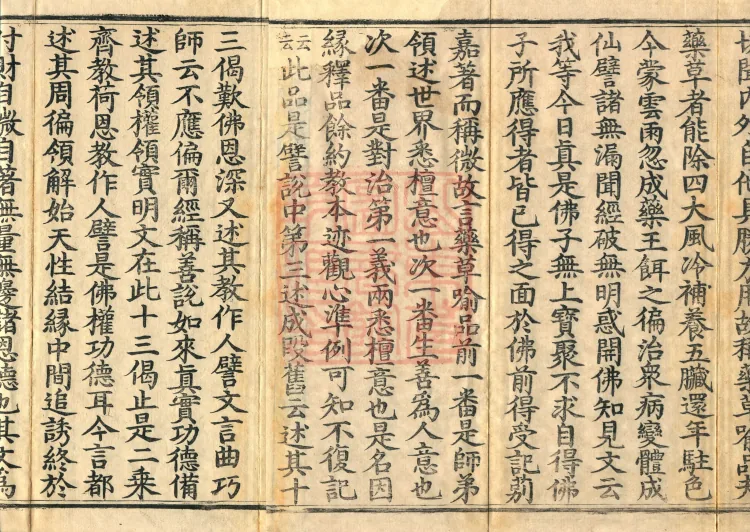 藥草者能除四大風冷補養五臟還年駐色
今蒙雲雨忽成藥王餌之徧治衆病變體成
仙譬諸無漏聞經破無明惑開佛知見文云
我等今日眞是佛子無上寶聚不求自得佛
子所應得者皆已得之面於佛前得受記莂
嘉著而稱微故言藥草喻品前一番是師弟
領述世界悉檀意也次一番生善爲人意也
次一番是對治第一義兩悉檀意也是名因
緣釋品餘約教本迹觀心準例可知不復記
云云此品是譬說中第三述成段舊云述其十
三偈歎佛恩深又述其教作人譬文言曲巧
師云不應偏爾經稱善說如來眞實功德備
述其領權領實明文在此十三偈止是二乘
齊教荷恩教作人譬是佛權功德耳今言都
述其周徧領解始天性結緣中間追誘終於
付財自微自著無量無邊諸恩德也其文爲